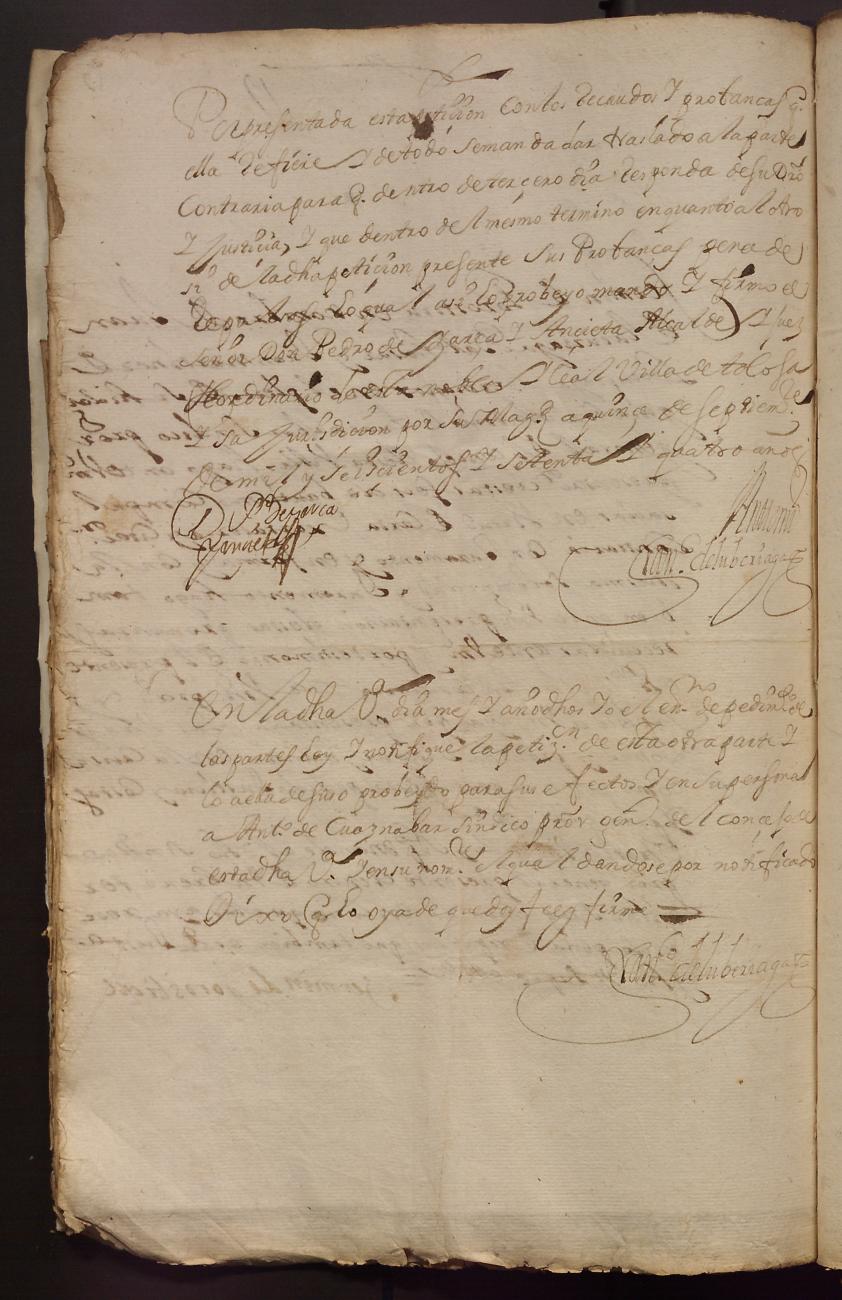 Por presentada esta peticion con los recaudos y probanças q.
ella refiere y de todo se manda dar traslado a la parte
Contraria para q. dentro de tercero dia responda de su Dro
y Justicia, y que dentro del mesmo termino en quanto al otro
si de la dha peticion presente sus Probancas pena de
lo qual asi lo probeyo mando y firmo el
Señor Don Pedro de Yarca y Ancieta Alcalde y Juez
hordinario de esta noble y leal Villa de tolosa
y su Jurisdicion por su Mag.d a quinze de septien.e
de mil y seiscientos y setenta y quatro años
D P.o de Yarca
y Ancieta
Ante mi
Fran.co de luberiaga
En la dha V.a dia mes y año dhos Yo el en.no de pedim.to de
las partes ley y notifique la petiz.on de esta otra parte y
lo a ella de suso probeydo para sus efectos y en su persona
a Ant.o de Cuaznabar sindico pror gen.l del concejo de
esta dha V.a y en su nom.e el qual dandose por notificado
Dixo q. lo oya de que doy fee y firme
Fran.co de luberiaga